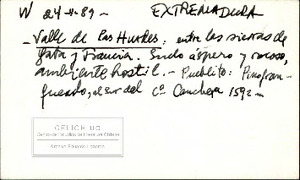 W 24-II-89- EXTREMADURA
- Valle de las Hurdes. entre las sierras de
Gata y Francia. Suelo áspero y rocoso,
ambiente hostil. - Pueblito: Pinofran-
queado, al sur del Cº 1592 -
CELICH UC
Centro de Estudios de Literatura Chilena